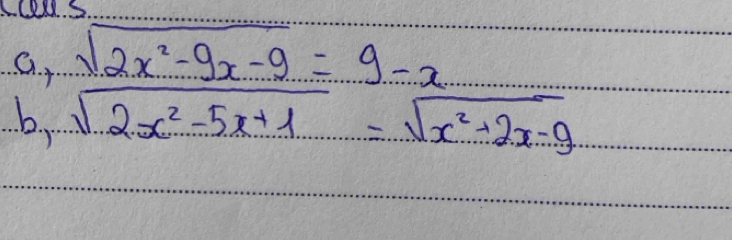 a, √2x²-9x-9 = 9-x
b, √2x²-5x+1 = √x²+2x-9